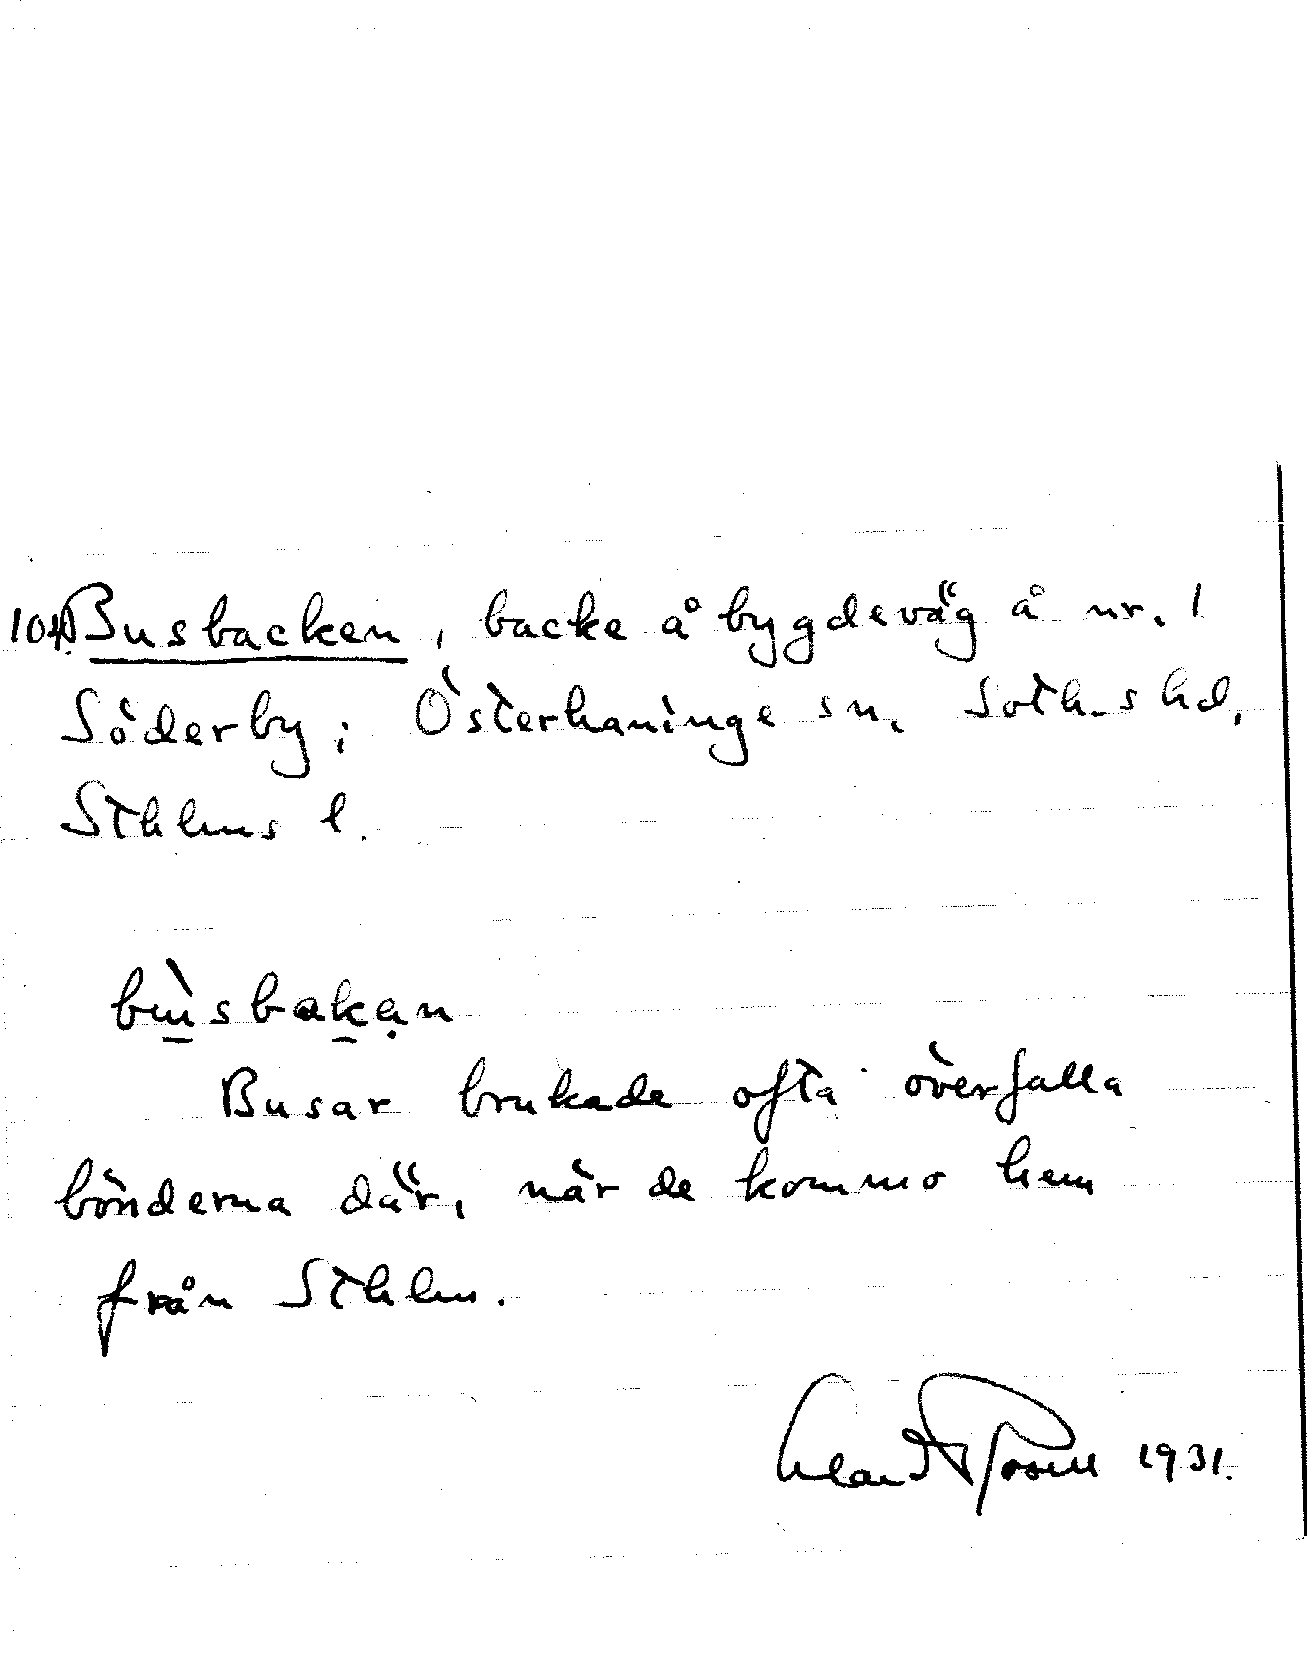 104) Busbacken, backe å bygdeväg å nr. 1
Söderby; Österhaninge sn. Soth.s hd,
Sthlms l.
bu̱̇̀sbaḵạn
Busar brukade ofta överfalla
bönderna där, när de kommo hem
från Sthlm.
1931.